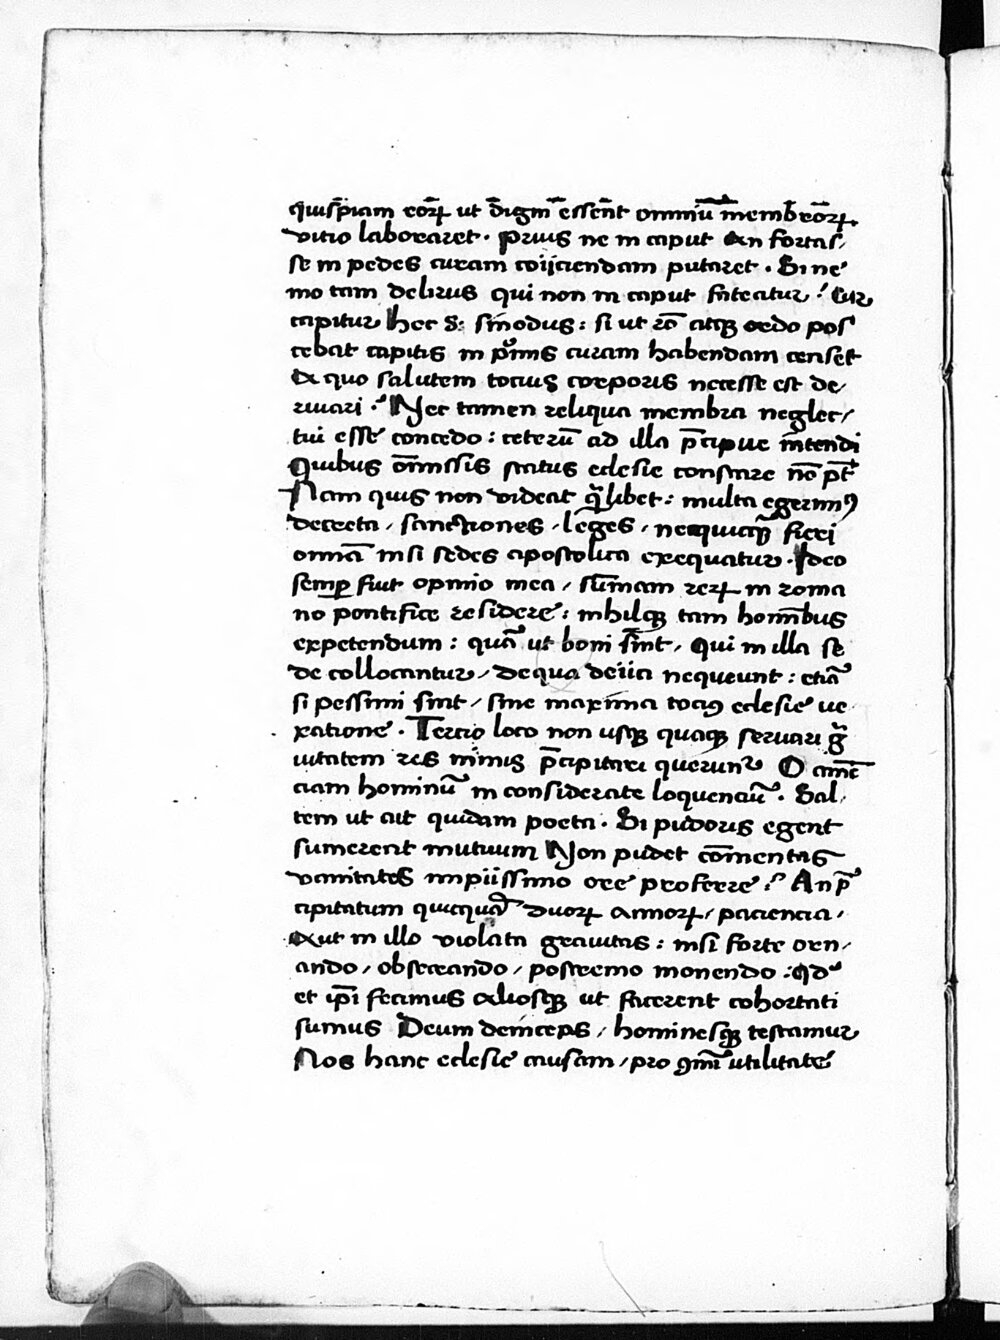 quisp̄iam eoꝝ ut d̄igni essēnt omniū memb̄roꝝ
vitio laboraret . prius ne in caput an fortas,
se in pedes curam coiiciendam putaret . Si ne
mo tam delirus qui non in caput fateatur ? Cur
capitur hec s: sinodus : si ut rō atqꝫ ordo pos
cebat capitis in pͥmis curam habendam censet
A quo salutem tocius corporis necesse est de,
rivari . Nec tamen reliqua membra neglec,
tui esse concedo : ceterū ad illa p̄cipue intendi
Quibus om̄issis status eclesie constare nō pt̄
Nam quis non videat qͣ̄libet : multa egerimꝰ
decreta , sanctiones , leges , nequicqͣ̄ fieri
omnia nisi sedes apostolica exequatur . Ideo
semꝑ fuit opinio mea , sum̄am reꝝ in roma
no pontifice residere : nihilqꝫ tam hominibus
expetendum : quā ut boni sint , Qui in illa se
de collocantur , de qua deiici nequeunt : etiā
si pessimi sint , sine maxima tociꝰ eclesie ve
xatione . Tercio loco non usqꝫ quaqꝫ servari gͣ
vitatem res nimis p̄cipitari querunt͛ O amē
ciam hominū in considerate loquenciū . Sal,
tem ut ait quidam poeta . Si pudoris egent
sumerent mutuum Non pudet com̄entas
vanitates impiissimo ore proferre ? An p̄
cipitatum quicquā duoꝝ annoꝝ , paciencia ,
Aut in illo violata gravitas : nisi forte orn,
ando , obsecrando , postremo monendo : qd
et ip̄i fecimus aliosqꝫ ut facerent cohortati
sumus Deum deinceps , hominesqꝫ testamur
Nos hanc eclesie causam , pro ꝯmūi utilitate